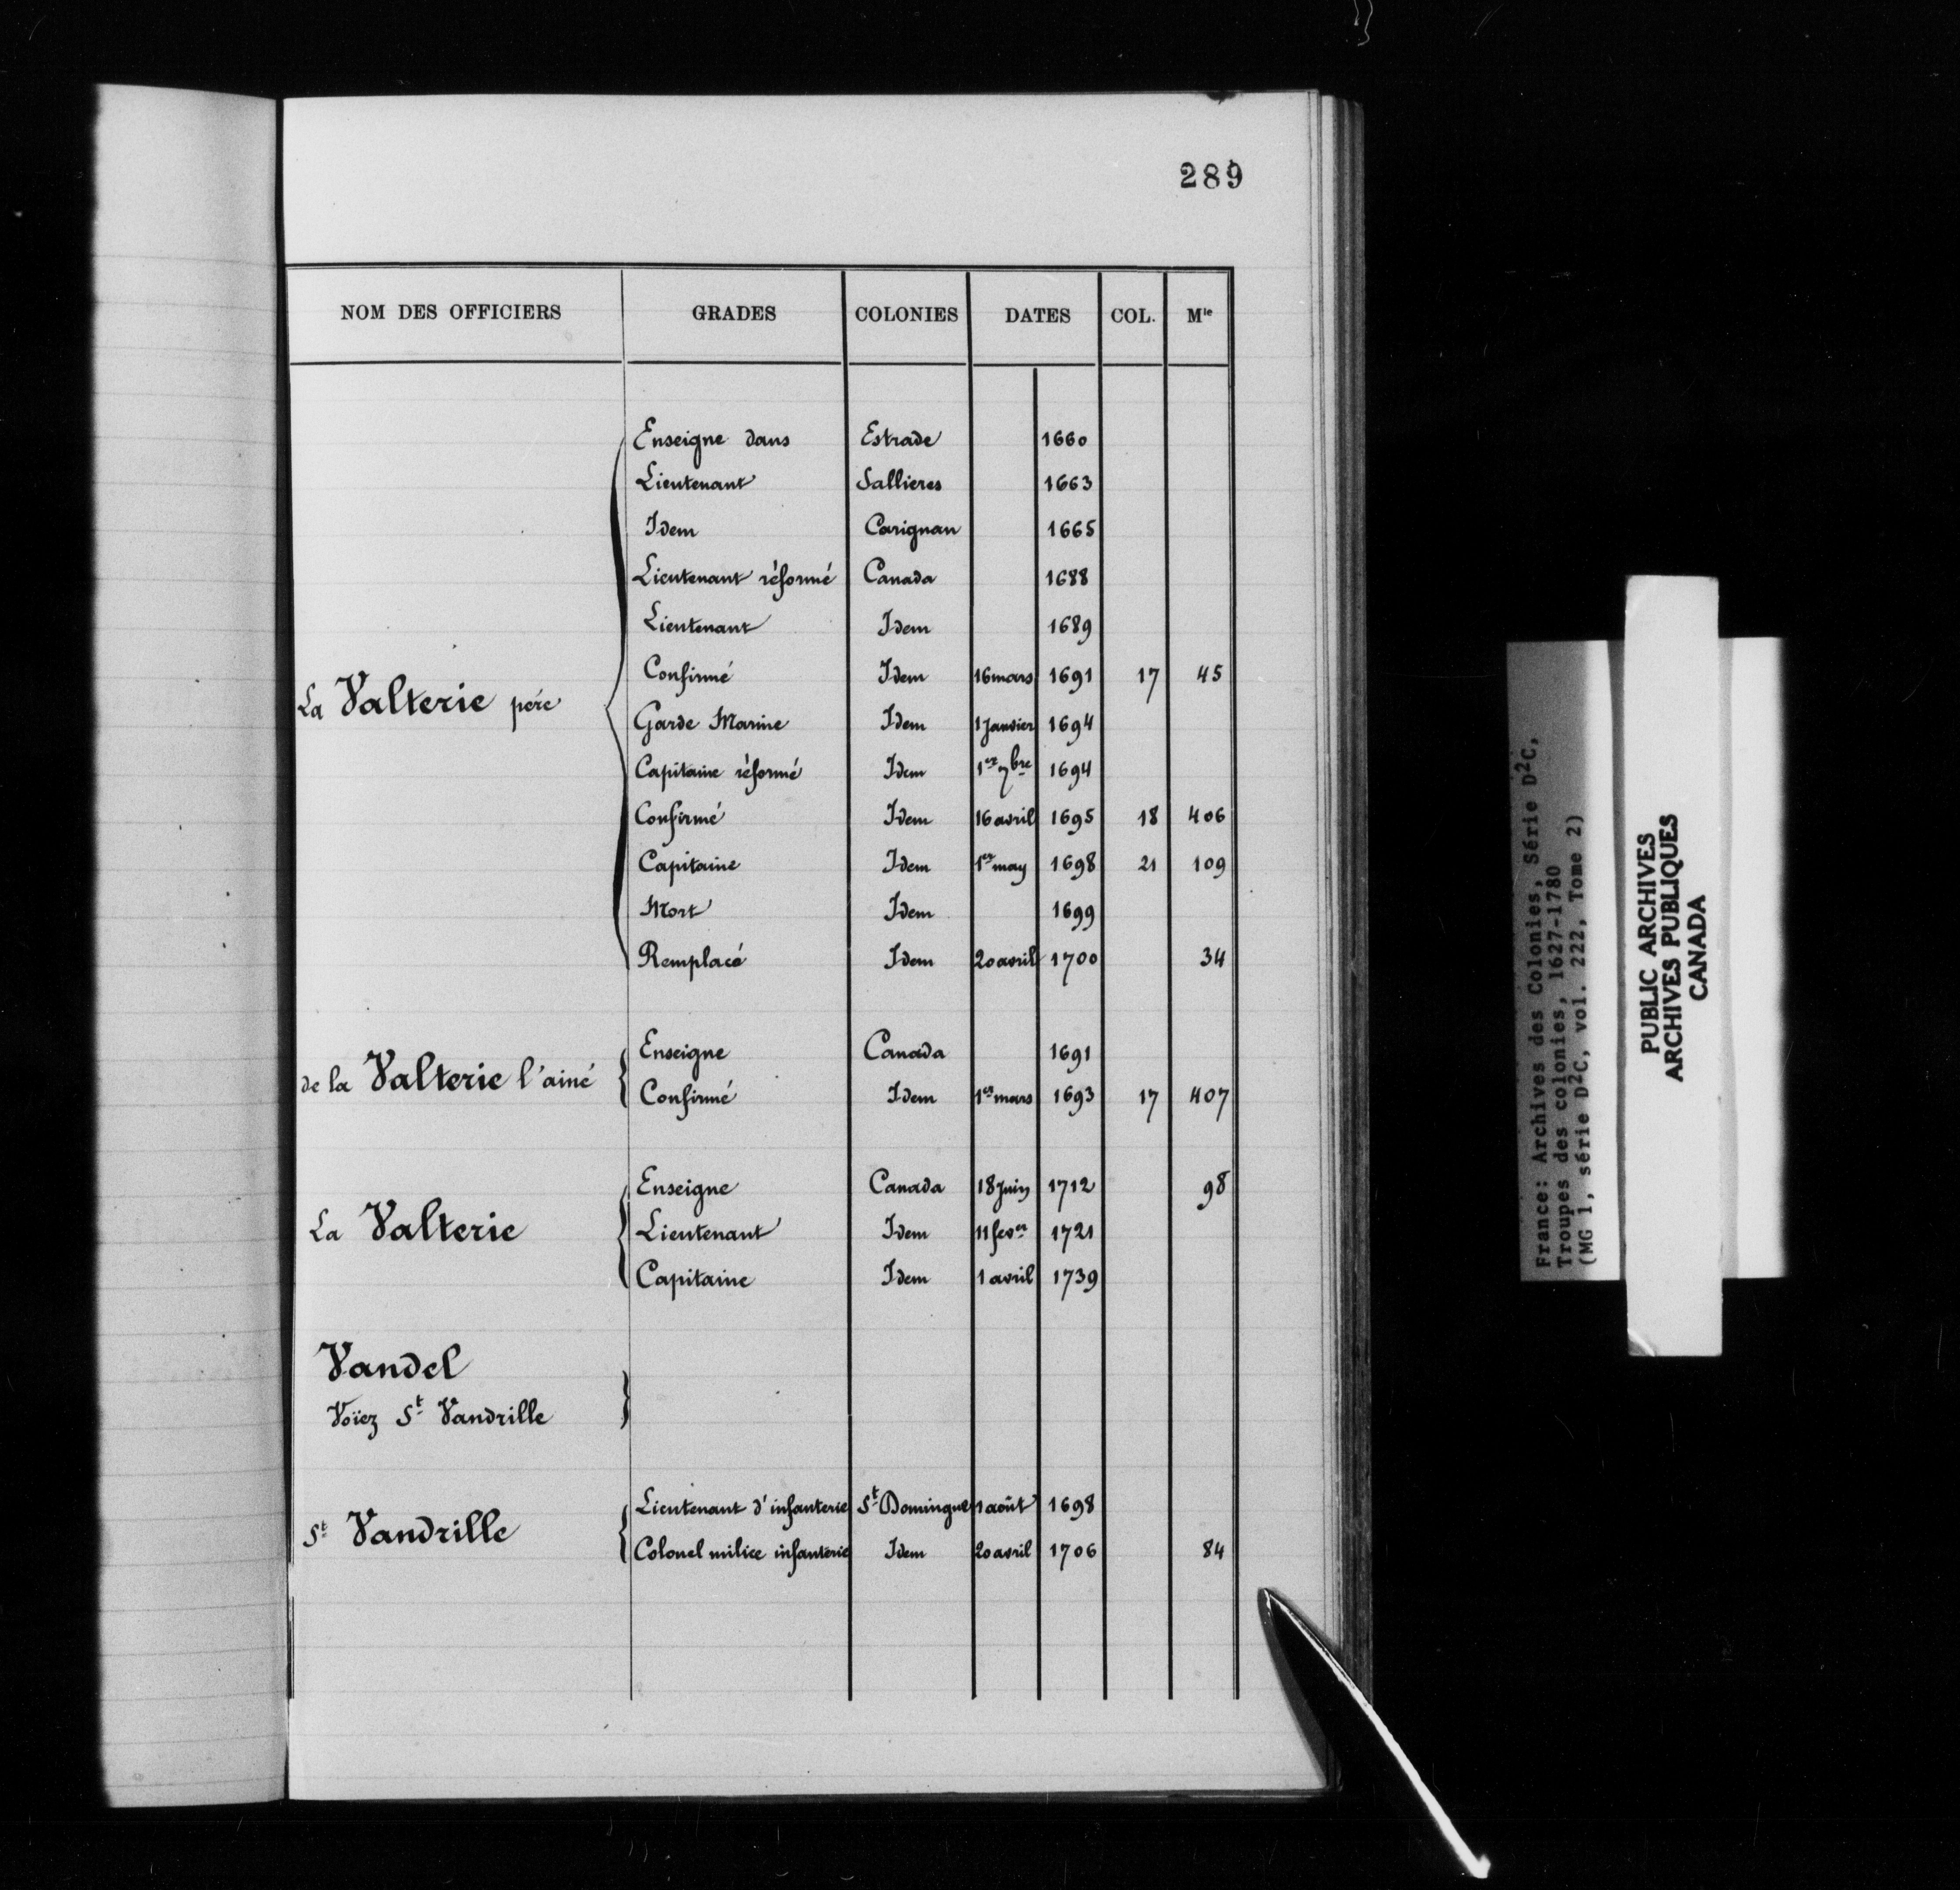 289
NOM DES OFFICIERS GRADES COLONIES DATES COL. Mle
Enseigne dans Estrade 1660
Lieutenant Sallieres 1663
Idem Carignan 1665
Lieutenant réformé Canada 1688
Lieutenant Idem 1689
Confirmé Idem 16 mars 1691 17 45
La Valterie père
Garde Marine Idem 1 Janvier 1694
Capitaine réformé Idem 1er 7bre 1694
Confirmé Idem 16 avril 1695 18 406
Capitaine Idem 1er may 1698 21 109
Mort Idem 1699
Remplacé Idem 20 avril 1700 34
Enseigne Canada 1691
de la Valterie l'ainé
Confirmé Idem 1er mars 1693 17 407
Enseigne Canada 18 Juin 1712 98
La Valterie Lieutenant Idem 11 fever 1721
Capitaine Idem 1 avril 1739
Vandel
Voïez St Vandrille
Lieutenant d'infanterie St Domingue 1 août 1698
St Vandrille
Colonel milice infanterie Idem 20 avril 1706 84
France: Archives des Colonies, Série D2C,
Troupes des colonies, 1627-1780
(MG 1, série D2C, vol. 222, Tome 2)
PUBLIC ARCHIVES
ARCHIVES PUBLIQUES
CANADA